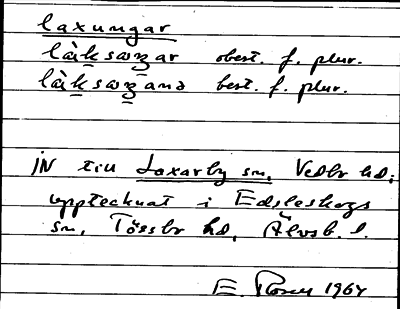 laxungar
làksᴂŋar obest. f. plur.
làksᴂŋana best. f. plur.
IN till Laxarby sn, Vedbo hd;
upptecknat i Edsleskogs
sn, Tössbo hd, Älvsb. l.
E. 1964